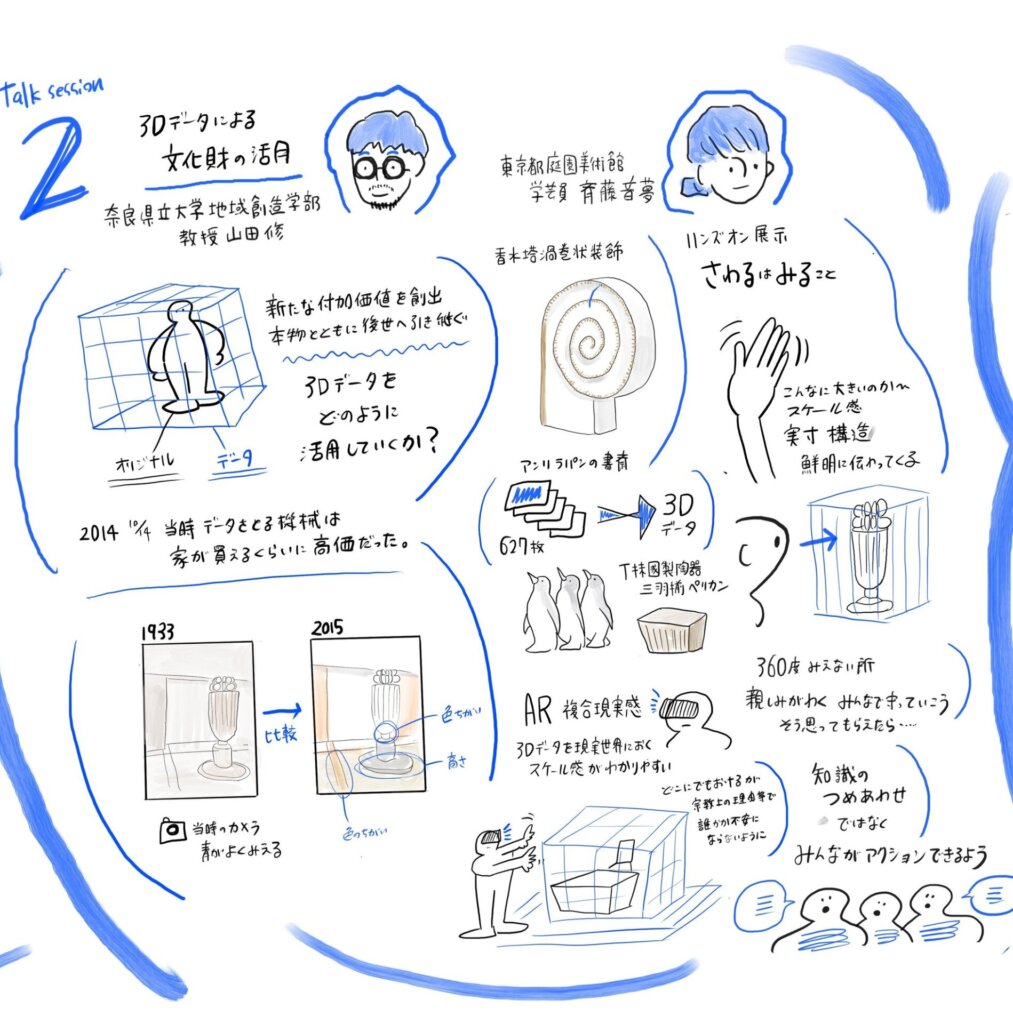 talk session
2
3Dデータによる
文化財の活用
奈良県立大学地域創造学部
教授 山田修
新たな付加価値を創出
本物とともに後世へ引き継ぐ
3Dデータを
どのように
活用していくか?
オリジナル
データ
2014 10/14 当時データをとる機械は
家が買えるくらいに高価だった。
1933
2015
比較
色ちがい
高さ
色のちがい
当時のカメラ
青がよくみえる
東京都庭園美術館
学芸員 斉藤音夢
香水塔渦巻状装飾
アンリラパンの書斎
627枚
3D
データ
丁抹國製陶器
三羽揃ペリカン
AR 複合現実感
3Dデータを現実世界におく
スケール感がわかりやすい
どこにでもおけるが
宗教上の理由等で
誰かが不安に
ならないように
ハンズオン展示
さわるはみること
こんなに大きいのか〜
スケール感
実寸 構造
鮮明に伝わってくる
360度 みえない所
親しみがわく みんなで守っていこう
そう思ってもらえたら……
知識の
つめあわせ
ではなく
みんながアクションできるよう